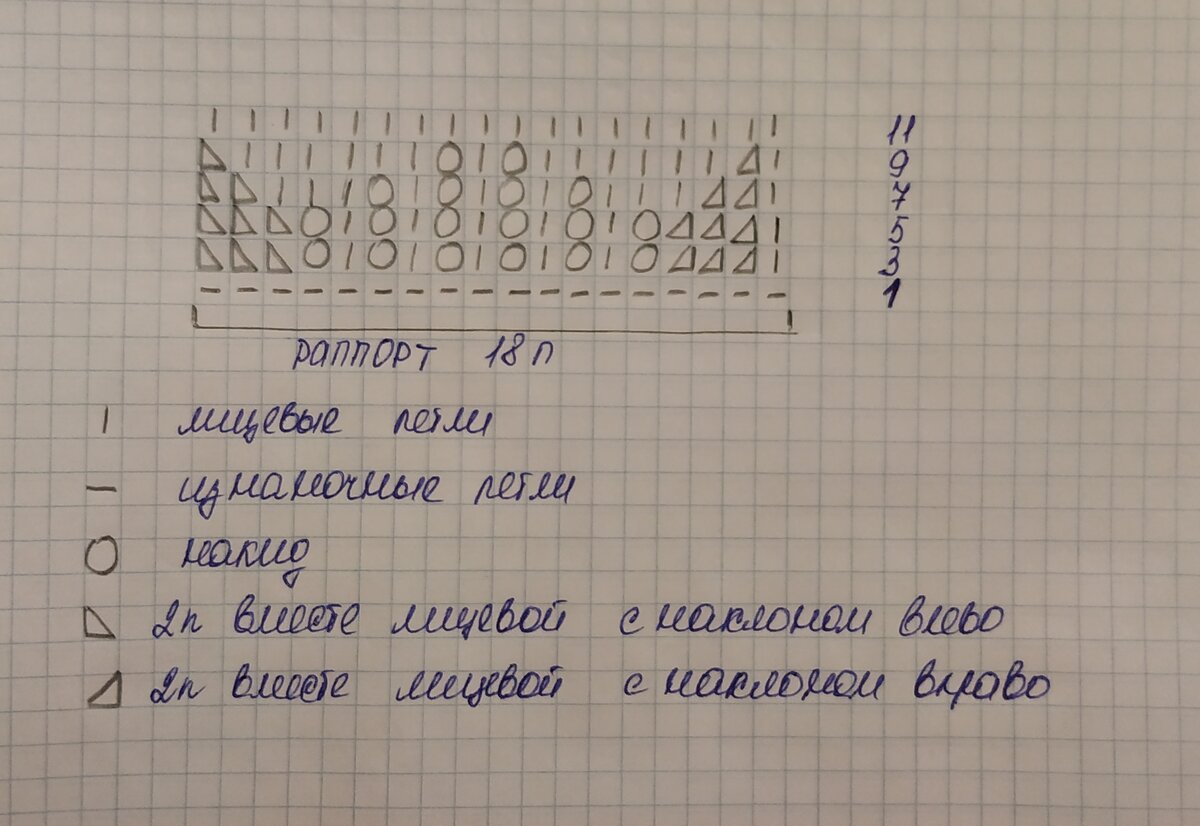 11
9
7
5
3
1
раппорт 18 п
лицевые петли
изнаночные петли
накид
2п вместе лицевой с наклоном влево
2п вместе лицевой с наклоном вправо